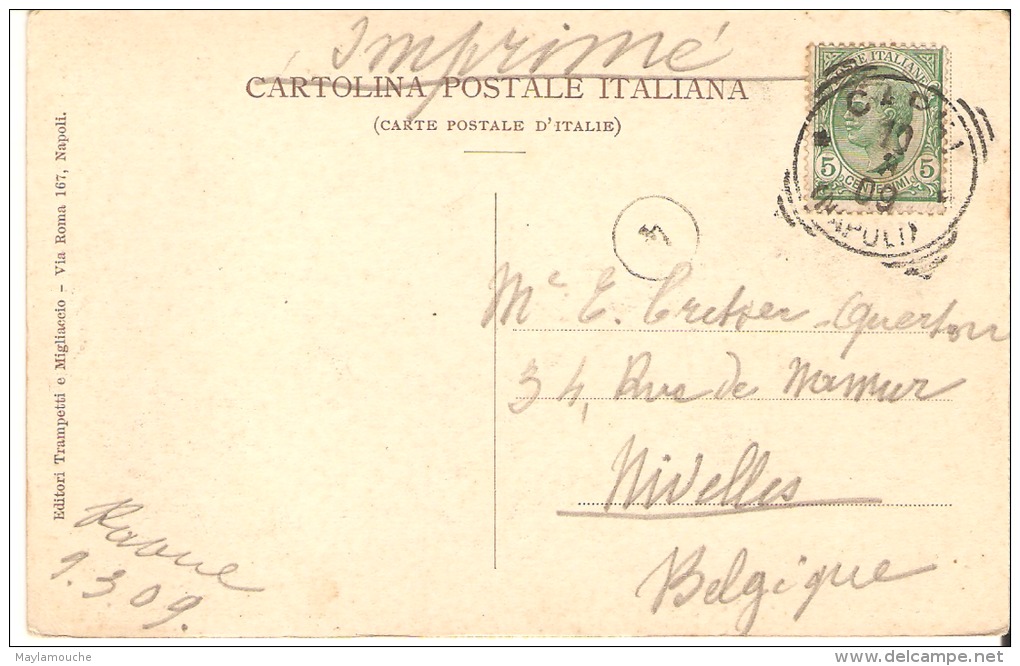 Imprimé
CARTOLINA POSTALE ITALIANA
(CARTE POSTALE D'ITALIE)
POSTE ITALIANE
5 5
CENTESIMI
CAPRI
10
3
09
(NAPOLI)
Editori Trampetti e Migliaccio - Via Roma 167, Napoli.
Mr E. Querton
34, Rue de Nammur
Nivelles
Belgique
9.3.09.
Maylamouche
delcampe.net